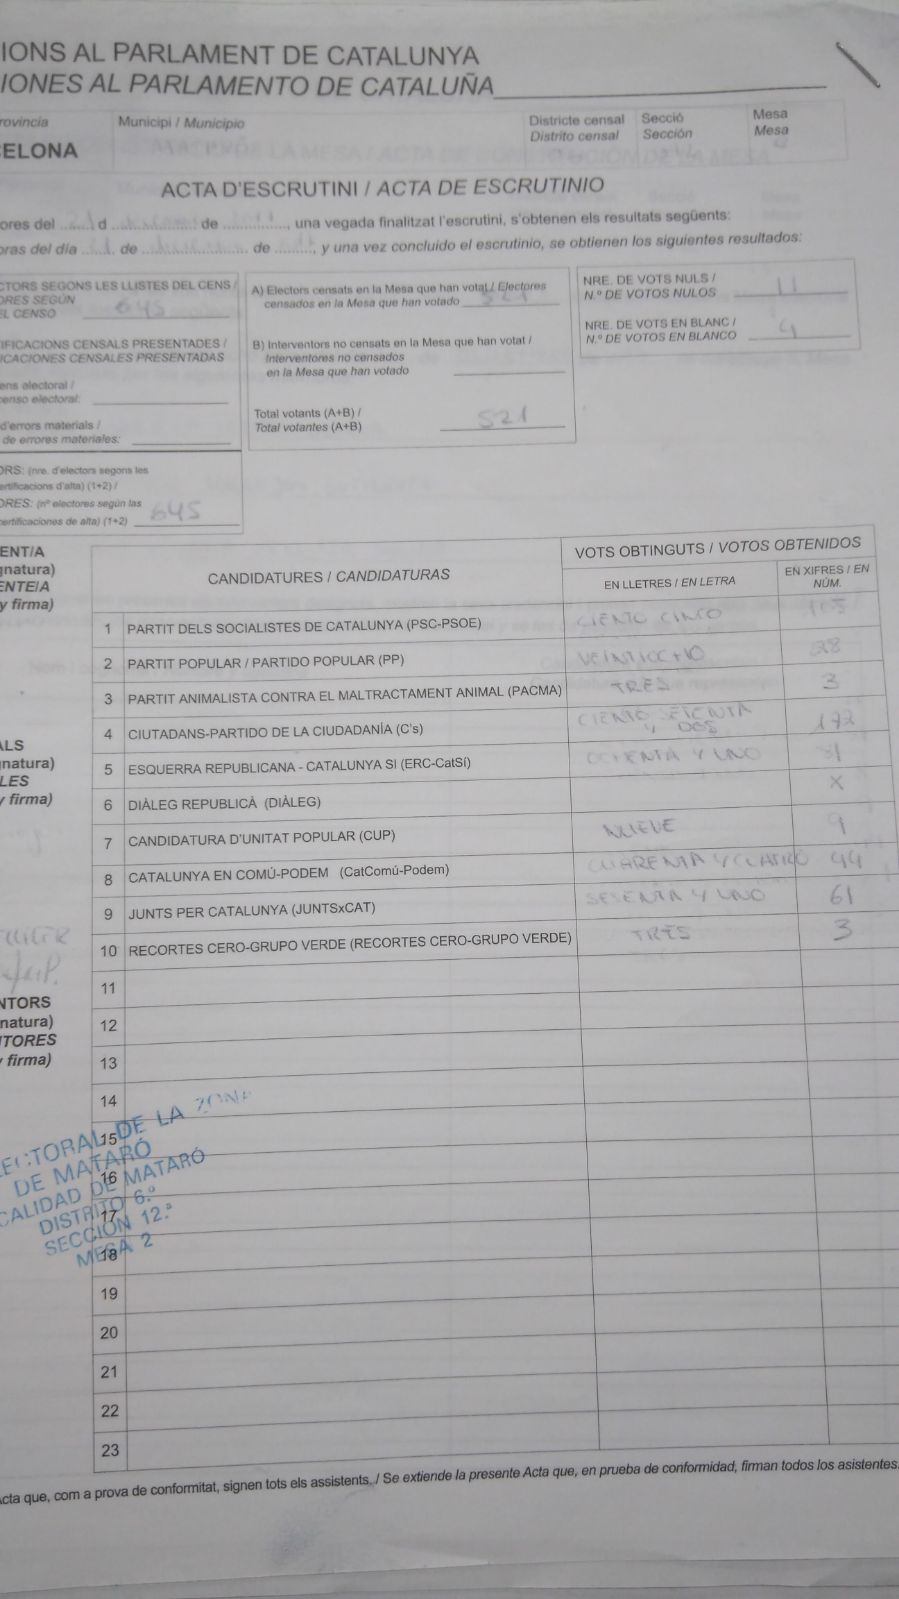 IONS AL PARLAMENT DE CATALUNYA
IONES AL PARLAMENTO DE CATALUÑA
rovincia
Municipi / Municipio
Districte censal
Distrito censal
Secció
Sección
Mesa
Mesa
CELONA
ACTA D'ESCRUTINI / ACTA DE ESCRUTINIO
ores del 21 d de , una vegada finalitzat l'escrutini, s'obtenen els resultats següents:
oras del día de de , y una vez concluido el escrutinio, se obtienen los siguientes resultados:
CTORS SEGONS LES LLISTES DEL CENS /
ORES SEGÚN
EL CENSO 645
IFICACIONS CENSALS PRESENTADES /
ICACIONES CENSALES PRESENTADAS
ens electoral /
censo electoral:
d'errors materials /
de errores materiales:
ORS: (nre. d'electors segons les
ertificacions d'alta) (1+2) /
ORES: (nº electores según las
certificaciones de alta) (1+2) 645
A) Electors censats en la Mesa que han votat / Electores
censados en la Mesa que han votado 521
B) Interventors no censats en la Mesa que han votat /
Interventores no censados
en la Mesa que han votado
Total votants (A+B) /
Total votantes (A+B) 521
NRE. DE VOTS NULS /
N.º DE VOTOS NULOS 11
NRE. DE VOTS EN BLANC /
N.º DE VOTOS EN BLANCO 4
ENT/A
gnatura)
ENTE/A
y firma)
CANDIDATURES / CANDIDATURAS
VOTS OBTINGUTS / VOTOS OBTENIDOS
EN LLETRES / EN LETRA
EN XIFRES / EN
NÚM.
1 PARTIT DELS SOCIALISTES DE CATALUNYA (PSC-PSOE) CIENTO CINCO 105
2 PARTIT POPULAR / PARTIDO POPULAR (PP) VEINTIOCHO 28
3 PARTIT ANIMALISTA CONTRA EL MALTRACTAMENT ANIMAL (PACMA) TRES 3
4 CIUTADANS-PARTIDO DE LA CIUDADANÍA (C's) CIENTO SETENTA Y DOS 172
5 ESQUERRA REPUBLICANA - CATALUNYA SI (ERC-CatSí) OCHENTA Y UNO 81
6 DIÀLEG REPUBLICÀ (DIÀLEG) X
7 CANDIDATURA D'UNITAT POPULAR (CUP) NUEVE 9
8 CATALUNYA EN COMÚ-PODEM (CatComú-Podem) CUARENTA Y CUATRO 44
9 JUNTS PER CATALUNYA (JUNTSxCAT) SESENTA Y UNO 61
10 RECORTES CERO-GRUPO VERDE (RECORTES CERO-GRUPO VERDE) TRES 3
11
12
13
14
15
16
17
18
19
20
21
22
23
ALS
gnatura)
LES
y firma)
NTORS
gnatura)
ITORES
y firma)
ECTORAL DE LA ZONA
DE MATARÓ
CALIDAD DE MATARÓ
DISTRITO 6.º
SECCIÓN 12.ª
MESA 2
Acta que, com a prova de conformitat, signen tots els assistents. / Se extiende la presente Acta que, en prueba de conformidad, firman todos los asistentes.